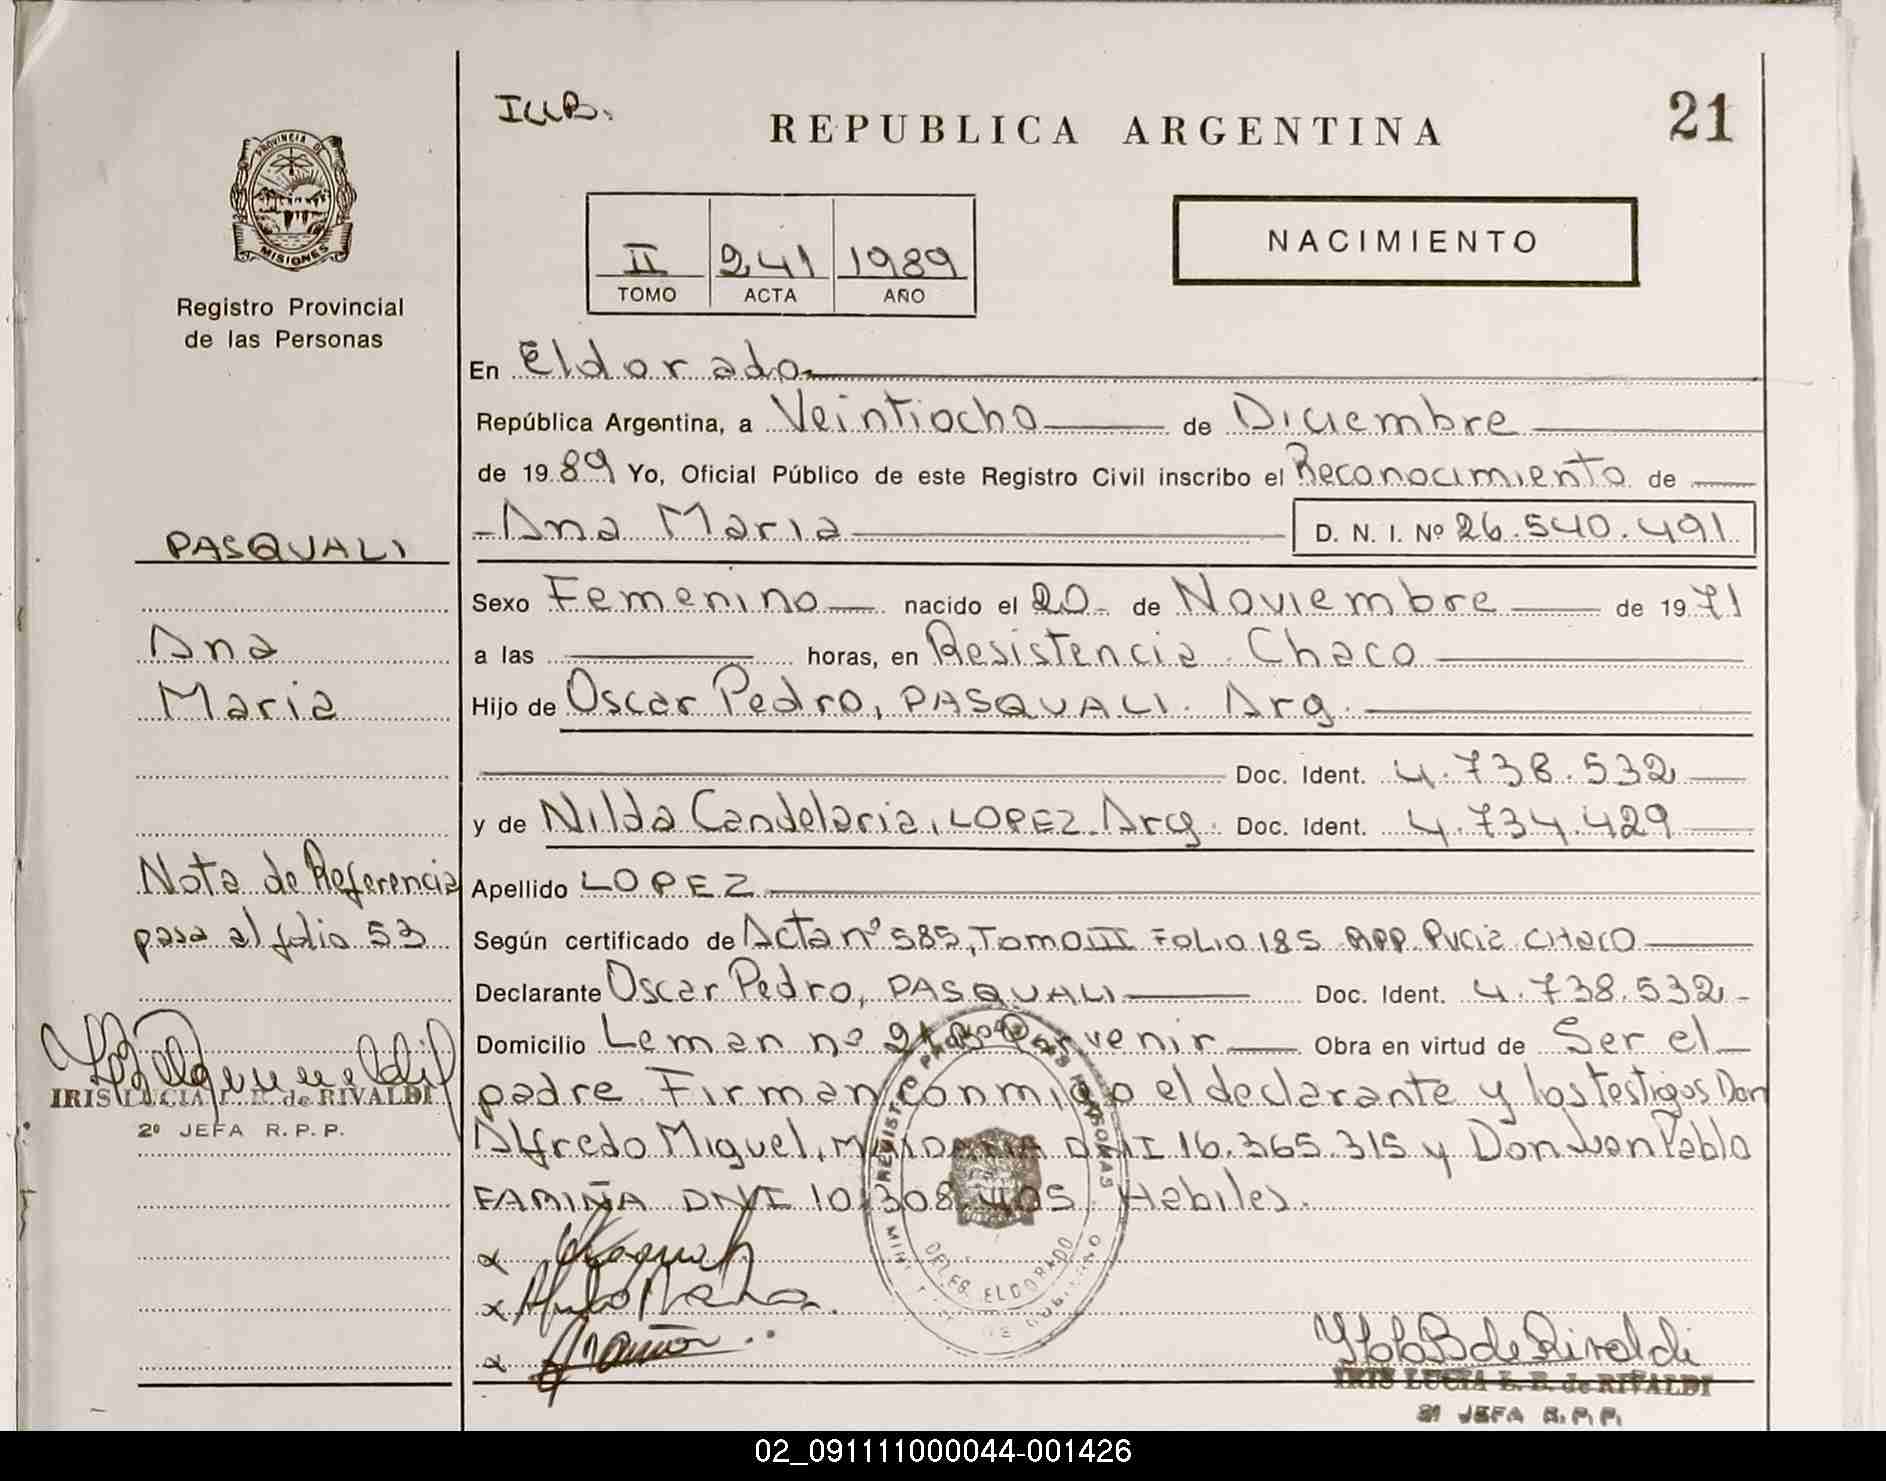 I.U.B.
REPUBLICA ARGENTINA
21
PROVINCIA DE
MISIONES
Registro Provincial
de las Personas
II 241 1989
TOMO ACTA AÑO
NACIMIENTO
En Eldorado
República Argentina, a Veintiocho de Diciembre
de 1989 Yo, Oficial Público de este Registro Civil inscribo el Reconocimiento de
Ana Maria D. N. I. Nº 26.540.491
Sexo Femenino nacido el 20 de Noviembre de 1971
a las horas, en Resistencia Chaco
Hijo de Oscar Pedro, PASQUALI. Arg.
Doc. Ident. 4.738.532
y de Nilda Candelaria, LOPEZ. Arg. Doc. Ident. 4.734.429
Apellido LOPEZ
Según certificado de Acta nº 585, Tomo III FOLIO 185 RPP. Pvcia CHACO
Declarante Oscar Pedro, PASQUALI Doc. Ident. 4.738.532
Domicilio Leman nº Porvenir Obra en virtud de Ser el
padre. Firman conmigo el declarante y los testigos Don
Alfredo Miguel, DNI 16.365.315 y Don Juan Pablo
FAMIÑA DNI 10.308.405. Habiles.
PASQUALI
Ana
Maria
Nota de Referencia
pasa al folio 53
IRIS LUCIA L. B. de RIVALDI
2º JEFA R.P.P.
DELEG. ELDORADO
IRIS LUCIA L. B. de RIVALDI
2ª JEFA R.P.P.
02_091111000044-001426